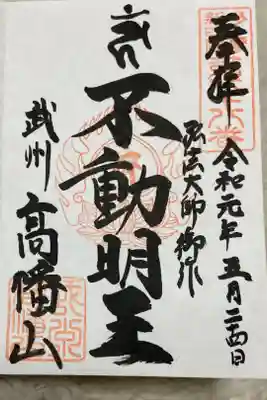 奉拝
令和元年五月二十四日
弘法大師御作
不動明王
武州 高幡山